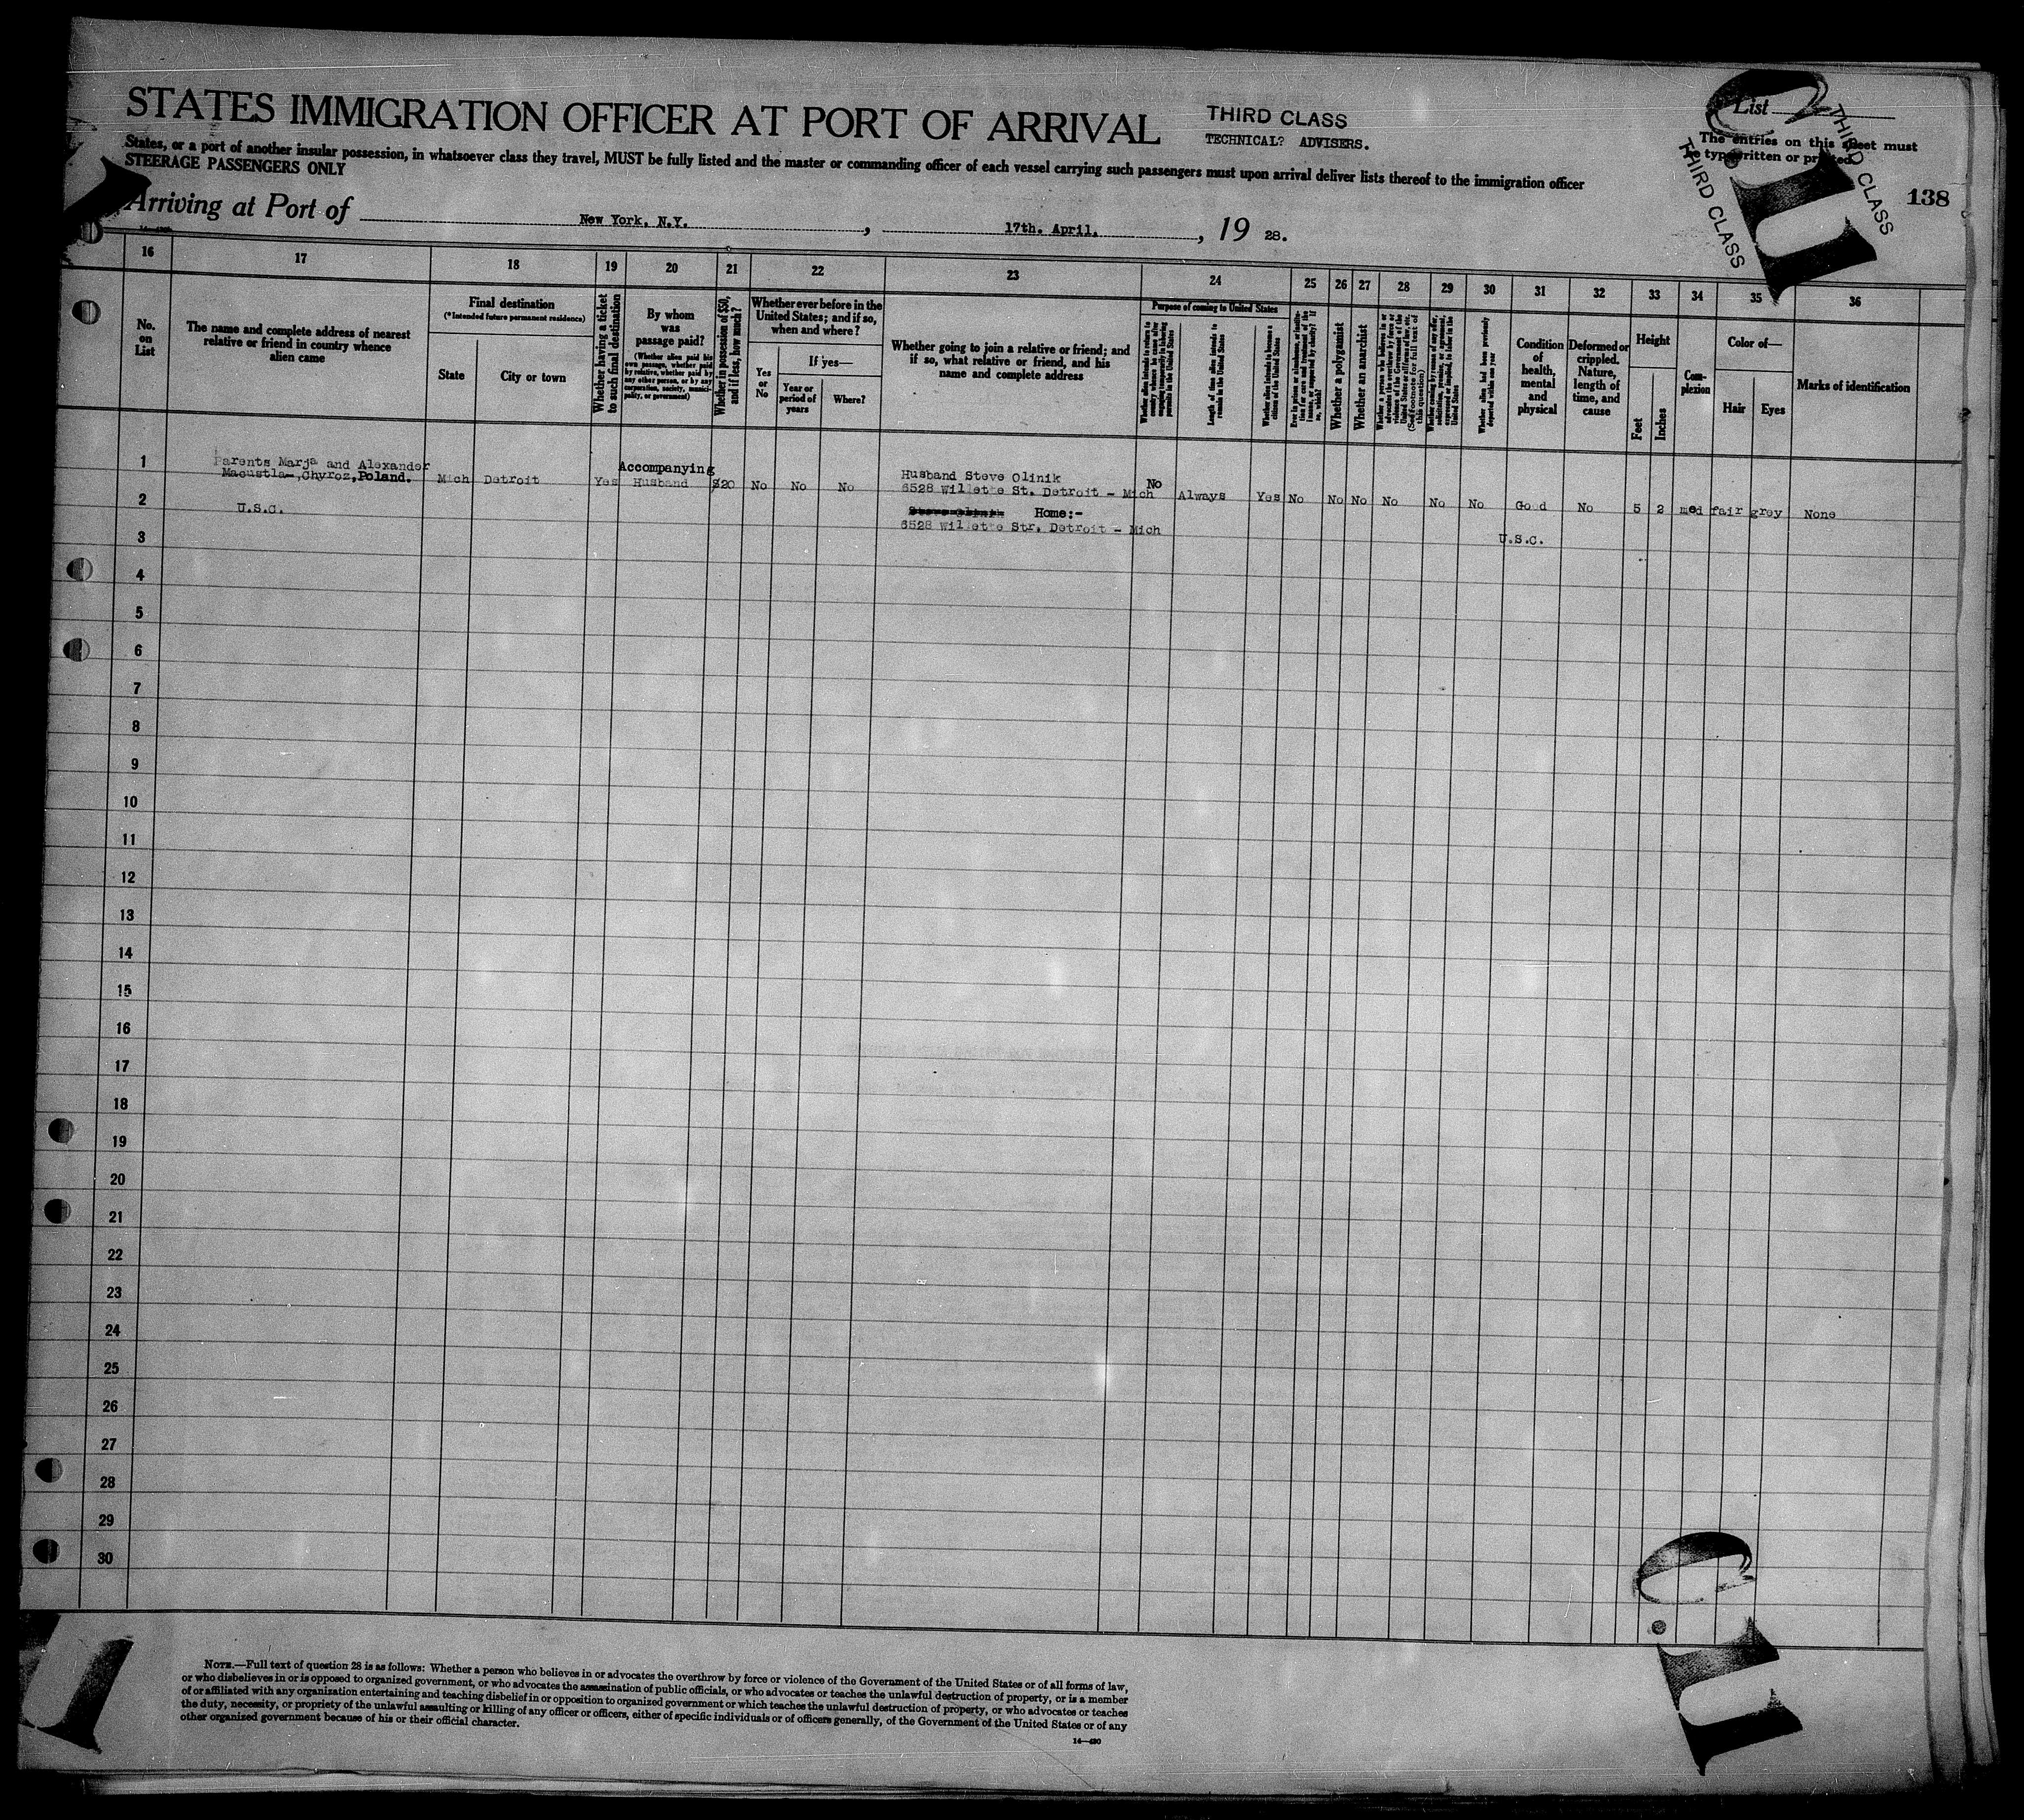 STATES IMMIGRATION OFFICER AT PORT OF ARRIVAL
THIRD CLASS
TECHNICAL? ADVISERS.
List
The entries on this sheet must
be typewritten or printed.
THIRD CLASS
THIRD CLASS
138
States, or a port of another insular possession, in whatsoever class they travel, MUST be fully listed and the master or commanding officer of each vessel carrying such passengers must upon arrival deliver lists thereof to the immigration officer
STEERAGE PASSENGERS ONLY
Arriving at Port of New York, N.Y. , 17th. April. , 19 28.
16 17 18 19 20 21 22 23 24 25 26 27 28 29 30 31 32 33 34 35 36
No. on List
The name and complete address of nearest relative or friend in country whence alien came
Final destination
(*Intended future permanent residence)
State
City or town
Whether having a ticket to such final destination
By whom was passage paid?
(Whether alien paid his own passage, whether paid by relative, whether paid by any other person, or by any corporation, society, municipality, or government)
Whether in possession of $50, and if less, how much?
Whether ever before in the United States; and if so, when and where?
Yes or No
If yes—
Year or period of years
Where?
Whether going to join a relative or friend; and if so, what relative or friend, and his name and complete address
Purpose of coming to United States
Length of time alien intends to remain in the United States
Whether alien intends to become a citizen of the United States
Whether a polygamist
Whether an anarchist
Whether alien had been previously deported within one year
Condition of health, mental and physical
Deformed or crippled. Nature, length of time, and cause
Height
Feet
Inches
Complexion
Color of—
Hair
Eyes
Marks of identification
1 Parents Marja and Alexander
Macustla-,Chyroz,Poland. Mich Detroit Yes Accompanying Husband $20 No No No Husband Steve Olinik
6528 Willette St. Detroit - Mich No Always Yes No No No No No No Good No 5 2 med fair grey None
2 U.S.C. Home:-
6528 Willette Str. Detroit - Mich U.S.C.
3
4
5
6
7
8
9
10
11
12
13
14
15
16
17
18
19
20
21
22
23
24
25
26
27
28
29
30
NOTE.—Full text of question 28 is as follows: Whether a person who believes in or advocates the overthrow by force or violence of the Government of the United States or of all forms of law,
or who disbelieves in or is opposed to organized government, or who advocates the assassination of public officials, or who advocates or teaches the unlawful destruction of property, or is a member
of or affiliated with any organization entertaining and teaching disbelief in or opposition to organized government or which teaches the unlawful destruction of property, or who advocates or teaches
the duty, necessity, or propriety of the unlawful assaulting or killing of any officer or officers, either of specific individuals or of officers generally, of the Government of the United States or of any
other organized government because of his or their official character.
14—490